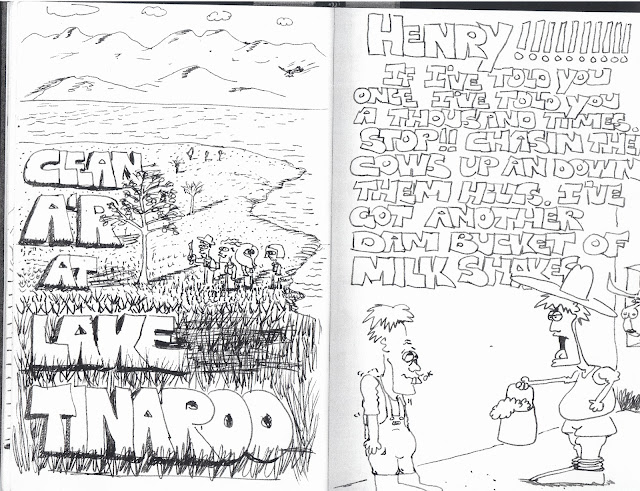 CLEAN
AIR
AT
LAKE
TINAROO
HENRY!!!!!!!!!!!!
IF I'VE TOLD YOU
ONCE I'VE TOLD YOU
A THOUSAND TIIMES.
STOP!! CHASIN THE
COWS UP AN DOWN
THEM HILLS. I'VE
GOT ANOTHER
DAM BUCKET OF
MILK SHAKES